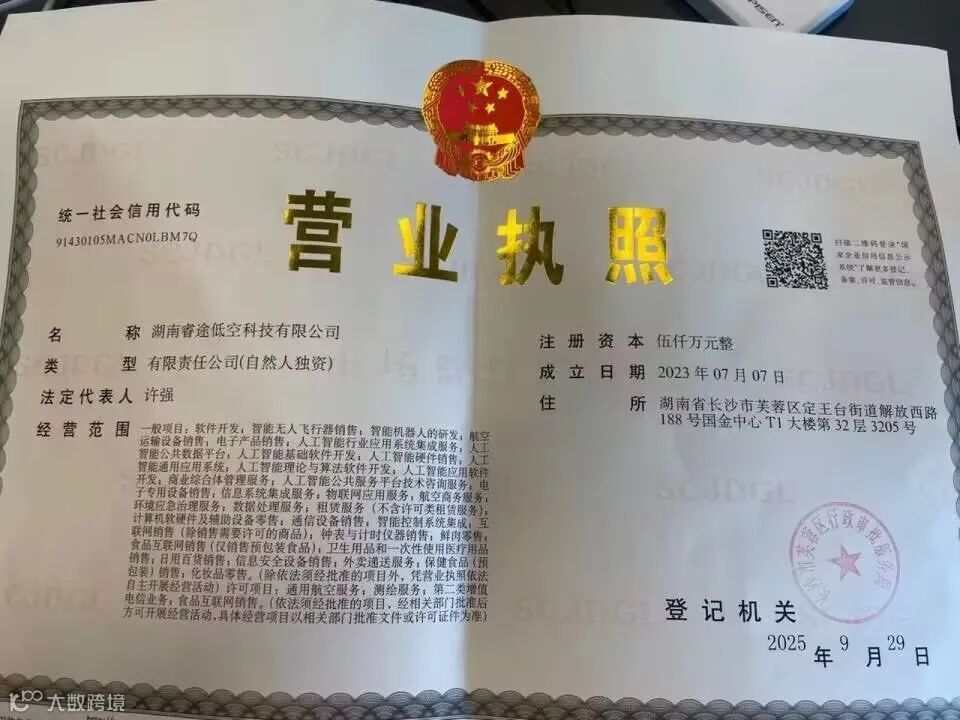 PISEN
统一社会信用代码
91430105MACN0LBM7Q
营业执照
扫描二维码登录“国
家企业信用信息公示
系统”了解更多登记、
备案、许可、监管信息。
名 称 湖南睿途低空科技有限公司
类 型 有限责任公司(自然人独资)
法定代表人 许强
经营范围 一般项目：软件开发；智能无人飞行器销售；智能机器人的研发；航空
运输设备销售；电子产品销售；人工智能行业应用系统集成服务；人工
智能公共数据平台；人工智能基础软件开发；人工智能硬件销售；人工
智能通用应用系统；人工智能理论与算法软件开发；人工智能应用软件
开发；商业综合体管理服务；人工智能公共服务平台技术咨询服务；电
子专用设备销售；信息系统集成服务；物联网应用服务；航空商务服务；
环境应急治理服务；数据处理服务；租赁服务（不含许可类租赁服务）；
计算机软硬件及辅助设备零售；通信设备销售；智能控制系统集成；互
联网销售（除销售需要许可的商品）；钟表与计时仪器销售；鲜肉零售；
食品互联网销售（仅销售预包装食品）；卫生用品和一次性使用医疗用品
销售；日用百货销售；信息安全设备销售；外卖递送服务；保健食品（预
包装）销售；化妆品零售。（除依法须经批准的项目外，凭营业执照依法
自主开展经营活动）许可项目：通用航空服务；测绘服务；第二类增值
电信业务；食品互联网销售。（依法须经批准的项目，经相关部门批准后
方可开展经营活动，具体经营项目以相关部门批准文件或许可证件为准）
注册资本 伍仟万元整
成立日期 2023年07月07日
住 所 湖南省长沙市芙蓉区定王台街道解放西路
188号国金中心T1大楼第32层3205号
SCJDGL
长沙市芙蓉区行政审批服务局
登记机关
2025年9月29日
大数跨境